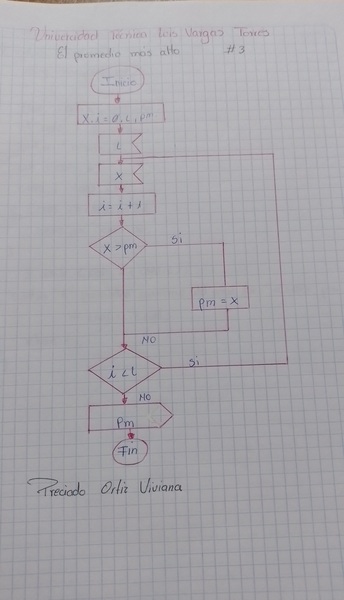 Universidad Técnica Luis Vargas Torres
El promedio mas alto #3
Inicio
X, i=0, L, pm
L
X
i = i + 1
X > pm
Si
pm = X
NO
i < L
Si
NO
pm
Fin
Preciado Ortiz Viviana